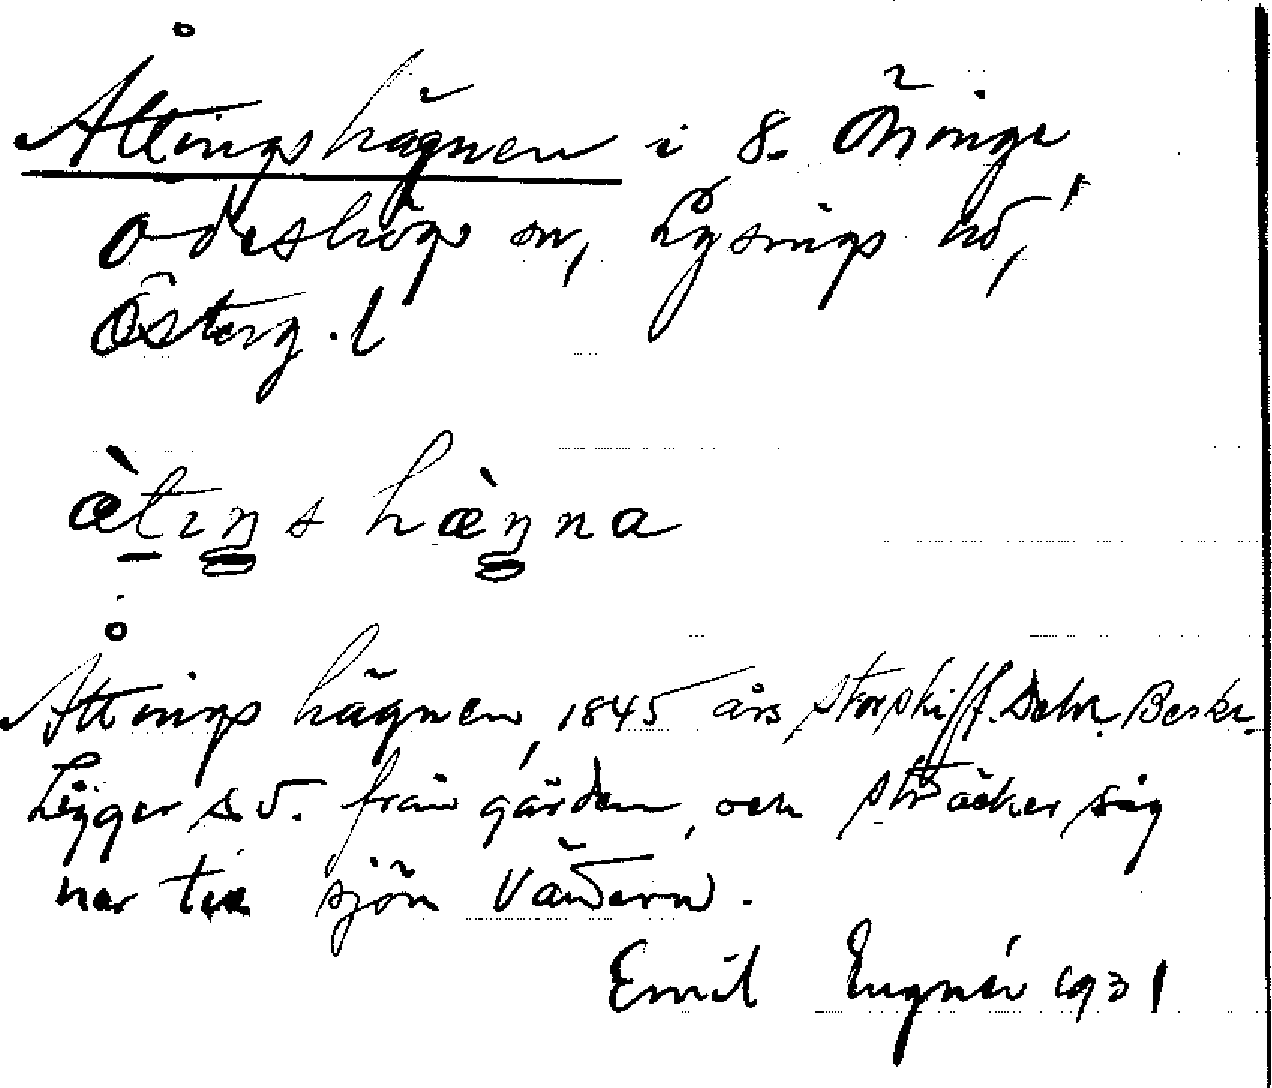 Åttingshägnen i S. Öninge
Ödeshögs sn, Lysings hd,
Österg. l
æ̀tıŋs hæ̀ŋna
Åttings hägnen, 1845 års storskiff. Deln. Beskr.
Ligger s.v. från gården, och sträcker sig
ner till sjön Vättern.
Emil 1931